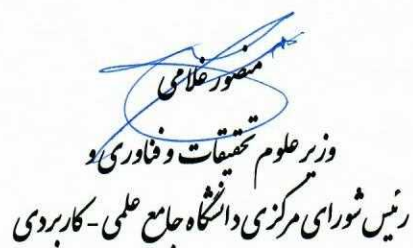 منصور غلامی
وزیر علوم تحقیقات و فناوری و
رئیس شورای مرکزی دانشگاه جامع علمی - کاربردی